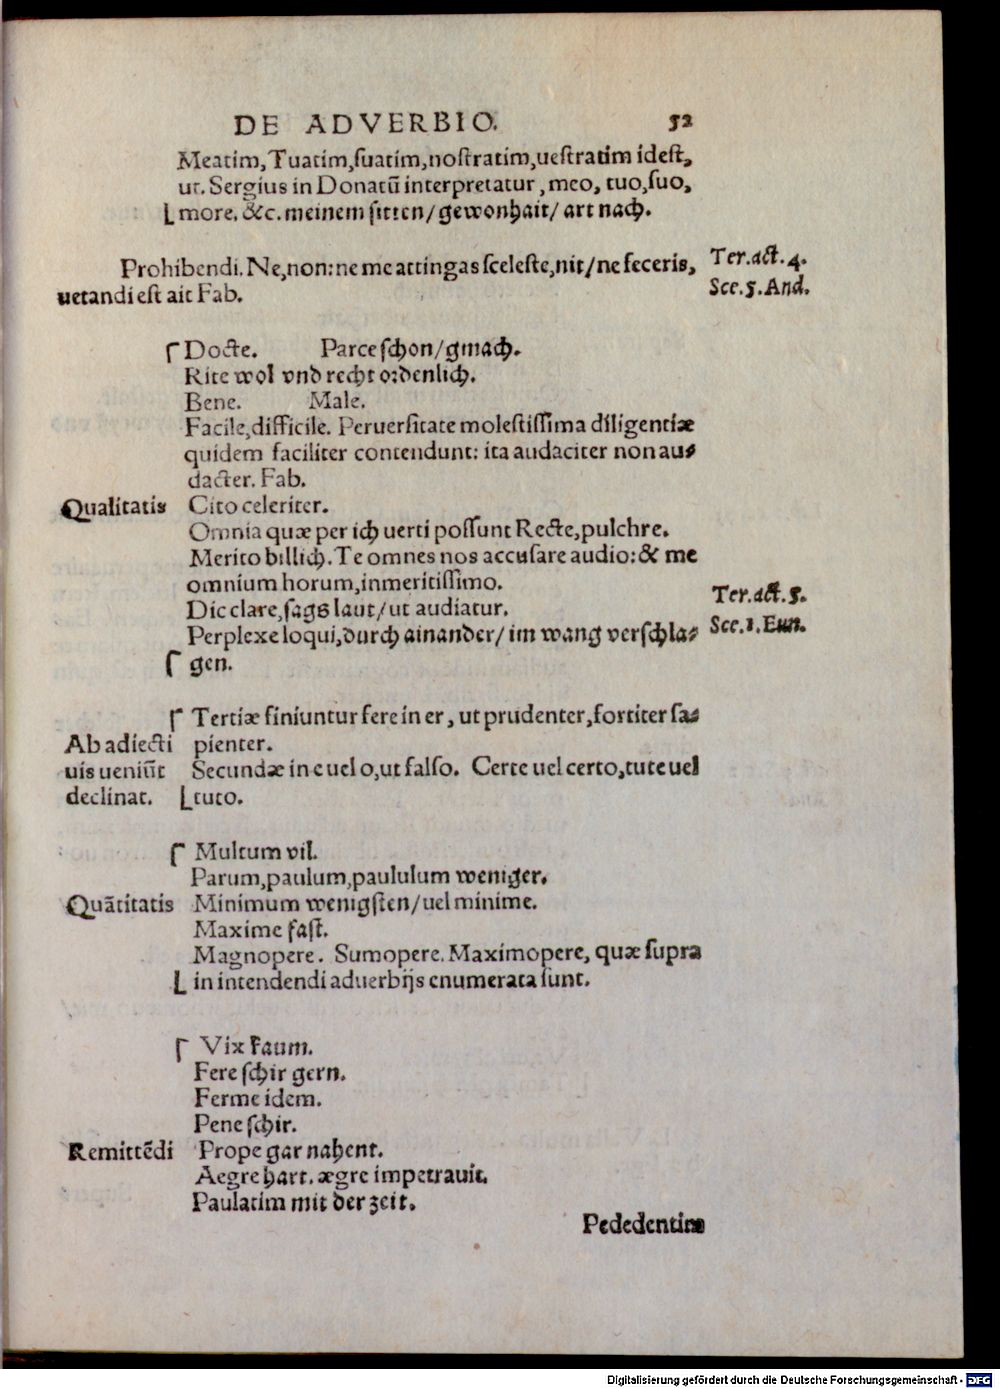 DE ADVERBIO. 52
Meatim, Tuatim, ſuatim, noſtratim, ueſtratim ideſt,
ut. Sergius in Donatū interpretatur, meo, tuo, ſuo,
more. &c. meinem ſitten/ gewonhait/ art nach.
Prohibendi. Ne, non: ne me attingas ſceleſte, nit/ ne feceris, Ter. act. 4.
uetandi eſt ait Fab. Sce. 5. And.
Docte. Parce ſchon/ gmach.
Rite wol vnd recht ordenlich.
Bene. Male.
Facile, difficile. Peruerſitate moleſtiſſima diligentiæ
quidem faciliter contendunt: ita audaciter non au⸗
dacter. Fab.
Qualitatis Cito celeriter.
Omnia quæ per ich uerti poſſunt Recte, pulchre.
Merito billich. Te omnes nos accuſare audio: & me
omnium horum, inmeritiſſimo.
Dic clare, ſags laut/ ut audiatur. Ter. act. 5.
Perplexe loqui, durch ainander/ im wang verſchla⸗ Sce. 1. Eun.
gen.
Tertiæ finiuntur fere in er, ut prudenter, fortiter ſa⸗
Ab adiecti pienter.
uis ueniūt Secundæ in e uel o, ut falſo. Certe uel certo, tute uel
declinat. tuto.
Multum vil.
Parum, paulum, paululum weniger.
Quātitatis Minimum wenigſten/ uel minime.
Maxime faſt.
Magnopere. Sumopere. Maximopere, quæ ſupra
in intendendi aduerbijs enumerata ſunt.
Vix kaum.
Fere ſchir gern.
Ferme idem.
Pene ſchir.
Remittēdi Prope gar nahent.
Aegre hart. ægre impetrauit.
Paulatim mit der zeit.
Pededentim
Digitalisierung gefördert durch die Deutsche Forschungsgemeinschaft - DFG